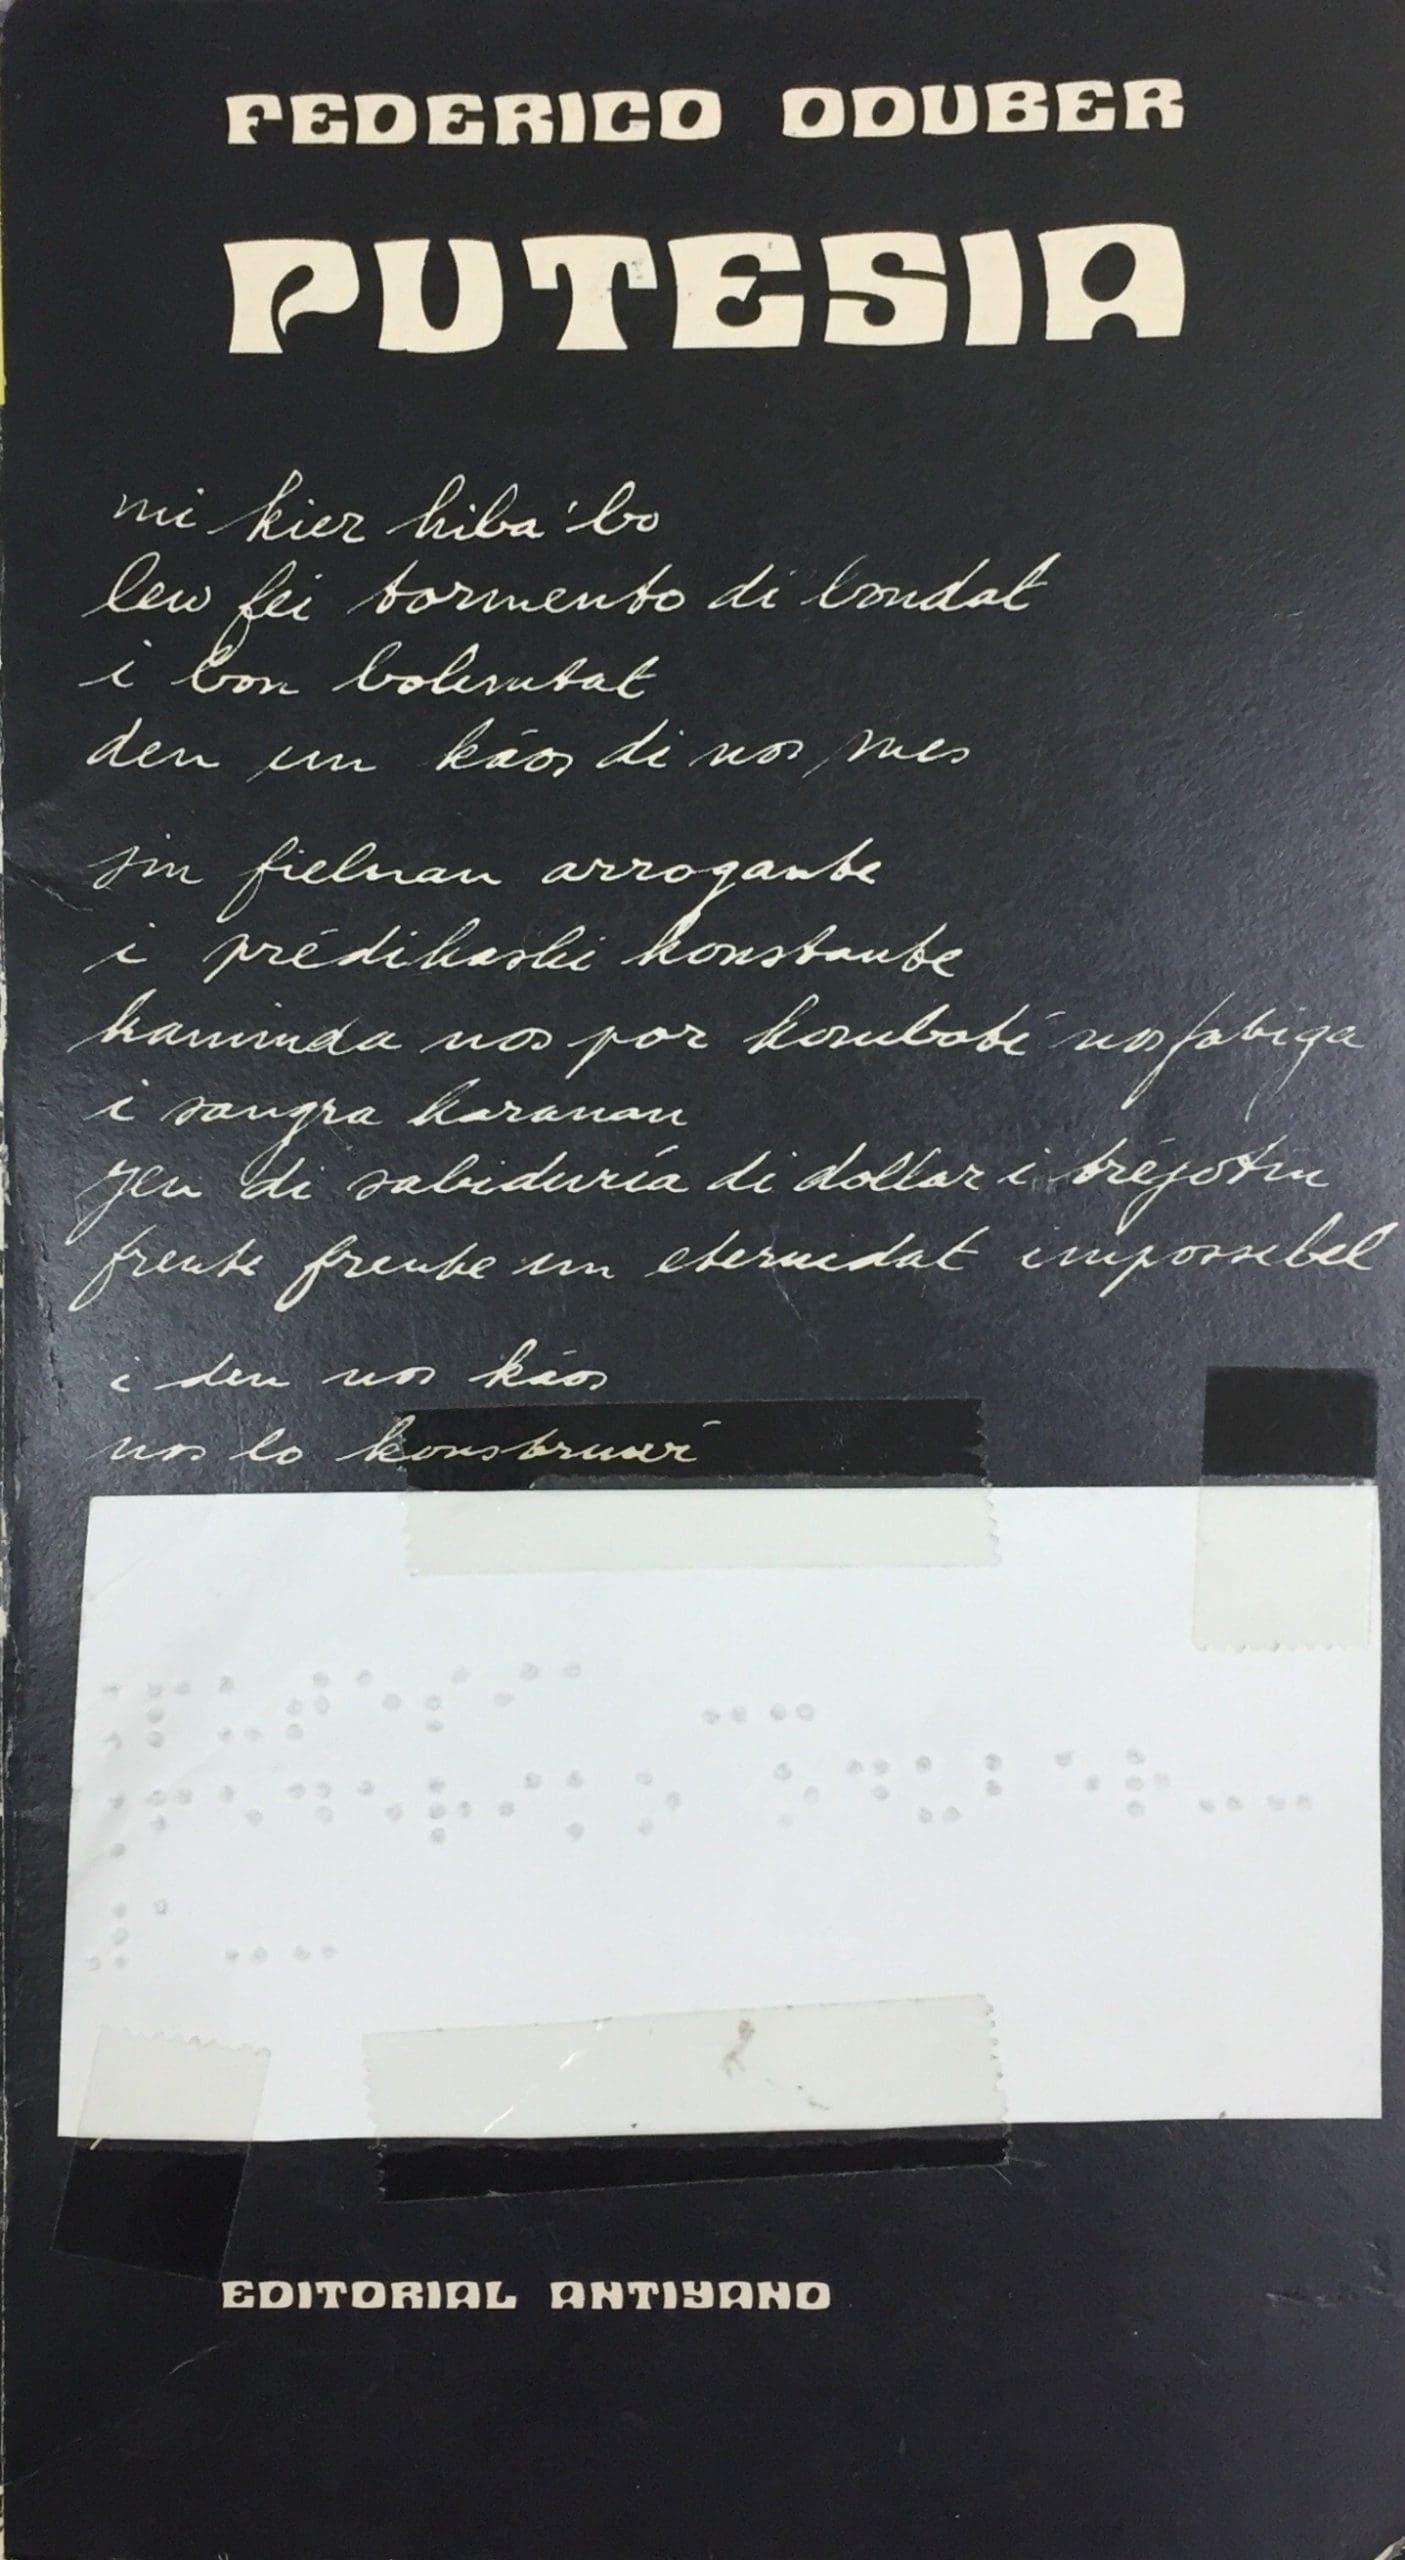 FEDERICO ODUBER
PUTESIA
mi kier hiba'bo
lew fei tormento di bondat
i bon boluntat
den un káos di nos mes
sin fielnan arrogante
i prédikashi konstante
kaminda nos por kombatí nos fatiga
i sangra karanan
yen di sabiduría di dollar i
frente frente un eternidat impossibel
i den nos káos
nos lo
EDITORIAL ANTIYANO